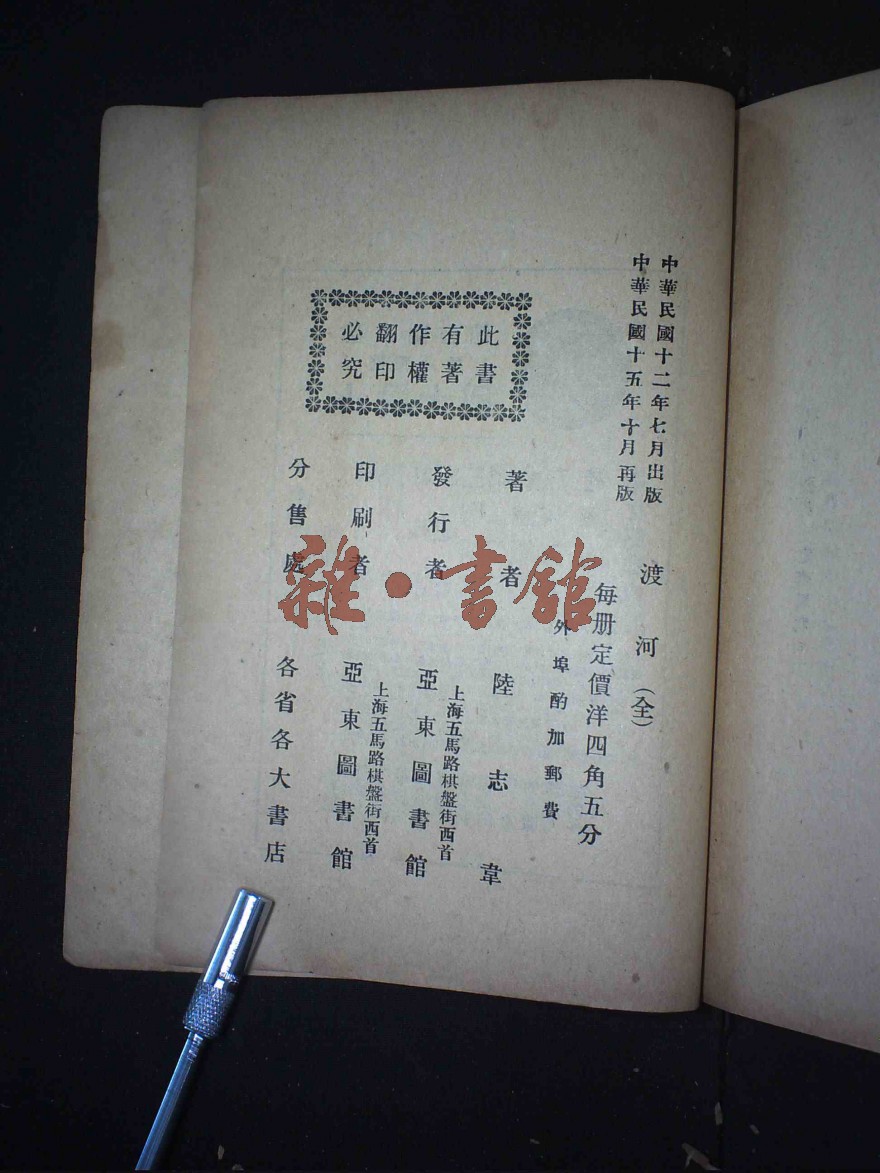 中華民國十二年七月出版
中華民國十五年十月再版
渡河（全）
每册定價洋四角五分
外埠酌加郵費
著者 陸志韋
發行者 上海五馬路棋盤街西首 亞東圖書館
印刷者 上海五馬路棋盤街西首 亞東圖書館
分售處 各省各大書店
此書
有著
作權
翻印
必究
雜·書館